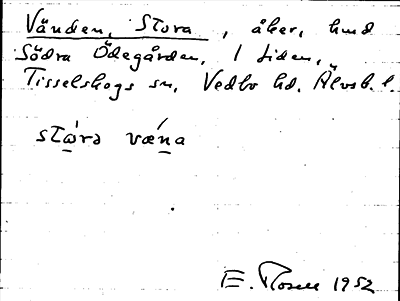 Vänden, Stora, åker, hmd
Södra Ödegården, 1 Liden,
Tisselskogs sn, Vedbo hd. Älvsb. l.
stώ̲rə vǽn̲a
E. Rosell 1952